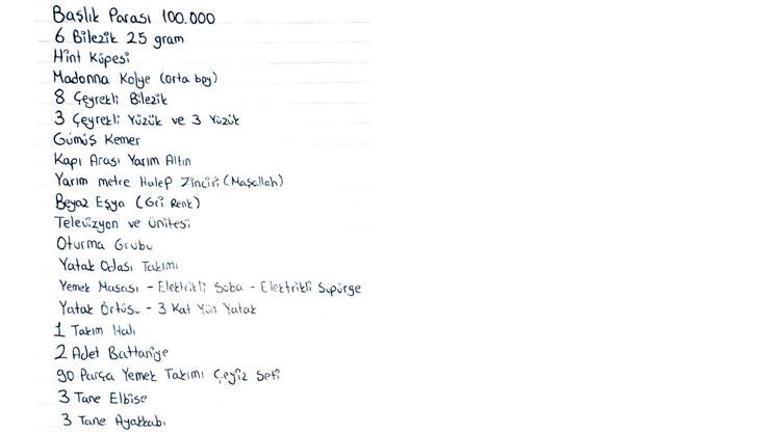 Başlık Parası 100.000
6 Bilezik 25 gram
Hint Küpesi
Madonna Kolye (orta boy)
8 Çeyrekli Bilezik
3 Çeyrekli Yüzük ve 3 Yüzük
Gümüş Kemer
Kapı Arası Yarım Altın
Yarım metre Halep Zinciri (Maşallah)
Beyaz Eşya (Gri Renk)
Televizyon ve Ünitesi
Oturma Grubu
Yatak Odası Takımı
Yemek Masası - Elektrikli Soba - Elektrikli Süpürge
Yatak Örtüsü - 3 Kat Yün Yatak
1 Takım Halı
2 Adet Battaniye
90 Parça Yemek Takımı Çeyiz Seti
3 Tane Elbise
3 Tane Ayakkabı